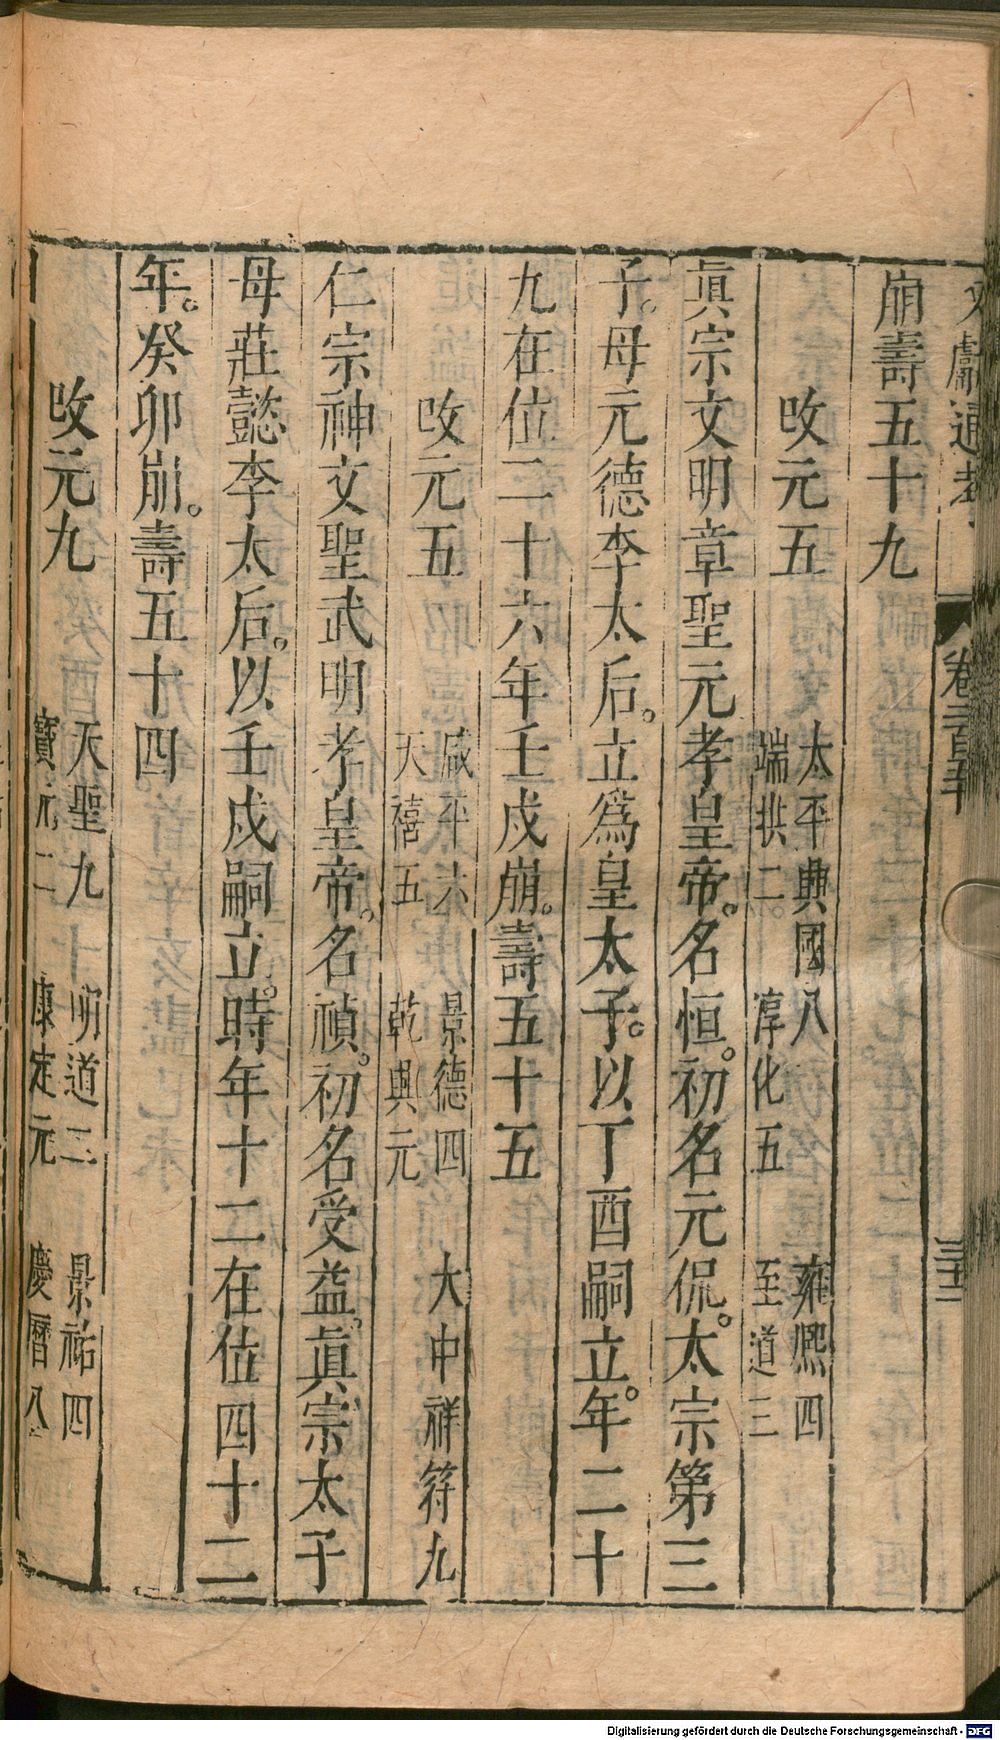 文獻通考
卷二百五十
三十二
崩壽五十九
攺元五
太平興國八 雍熙四
端拱二 淳化五 至道三
眞宗文明章聖元孝皇帝。名恒。初名元侃。太宗第三
子。母元德李太后。立爲皇太子。以丁酉嗣立。年二十
九在位二十六年壬戌崩。壽五十五
攺元五
咸平六 景德四 大中祥符九
天禧五 乾興元
仁宗神文聖武明孝皇帝。名禎。初名受益。眞宗太子
母莊懿李太后。以壬戌嗣立。時年十二在位四十二
年。癸卯崩。壽五十四
攺元九
天聖九 明道二 景祐四
寶元二 康定元 慶曆八
Digitalisierung gefördert durch die Deutsche Forschungsgemeinschaft - DFG